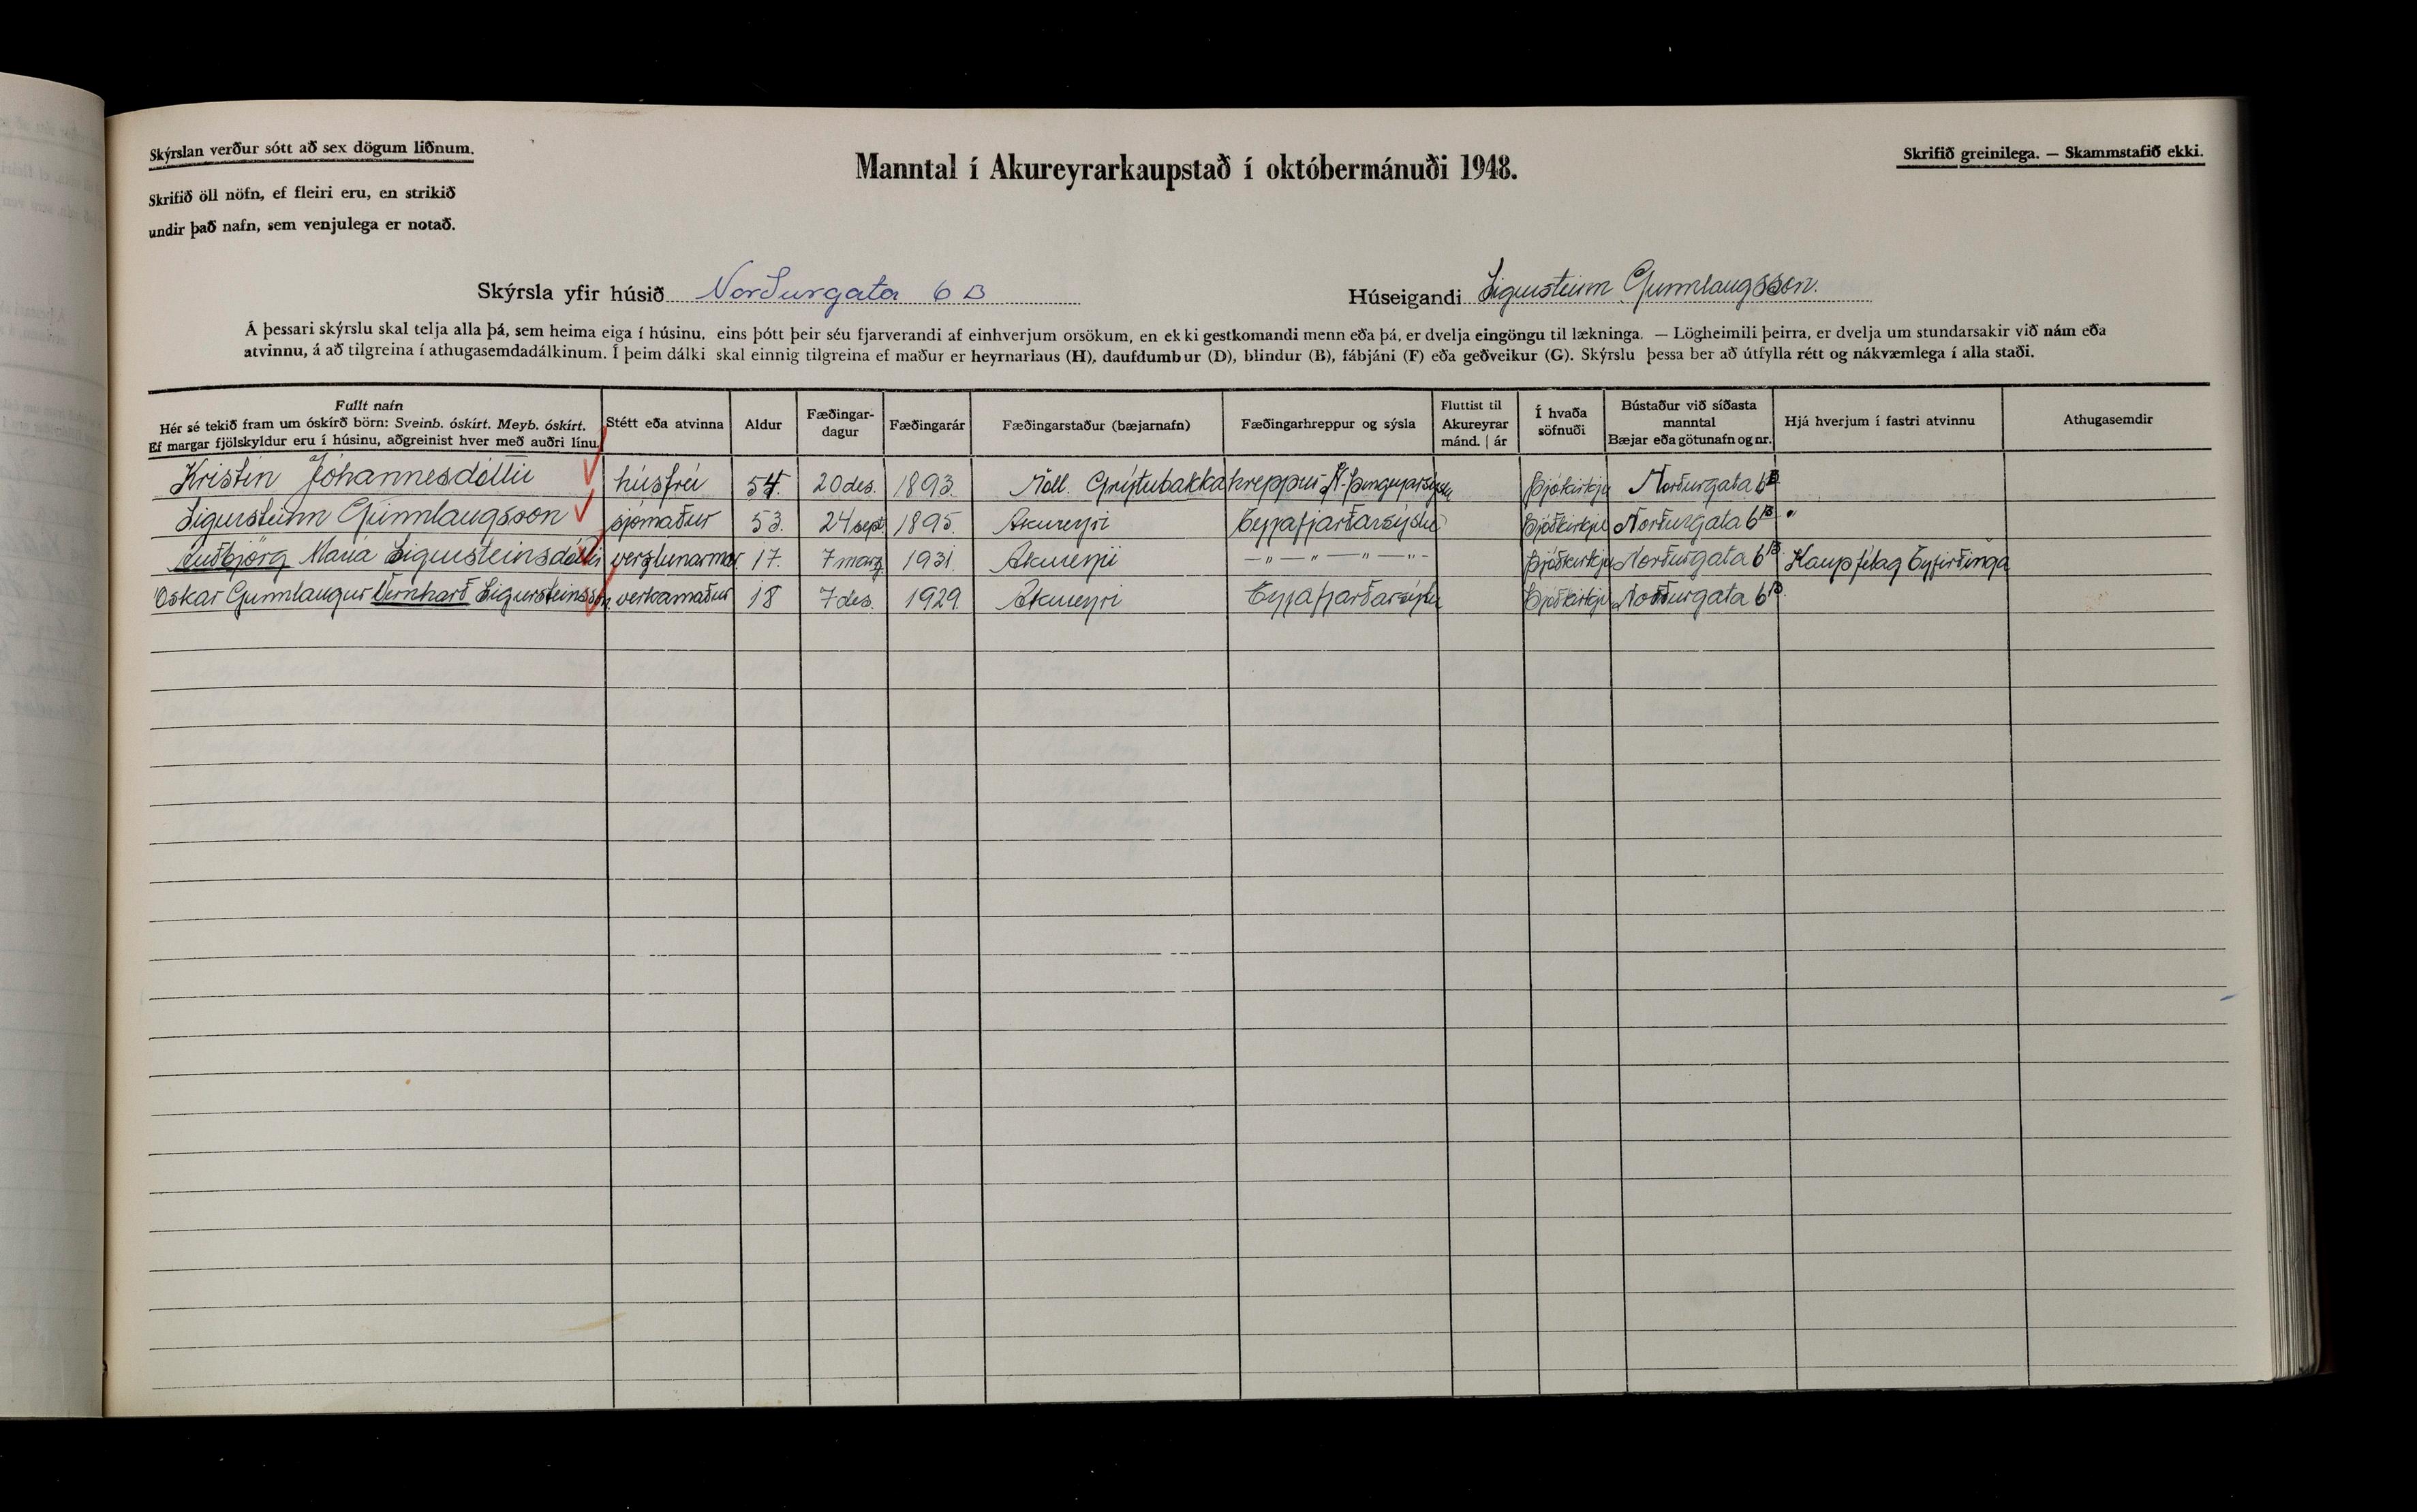 Skýrslan verður sótt að sex dögum liðnum.
Manntal í Akureyrarkaupstað í októbermánuði 1948.
Skrifið greinilega. — Skammstafið ekki.
Skrifið öll nöfn, ef fleiri eru, en strikið
undir það nafn, sem venjulega er notað.
Skýrsla yfir húsið Norðurgata 6 B Húseigandi Sigursteinn Gunnlaugsson.
Á þessari skýrslu skal telja alla þá, sem heima eiga í húsinu, eins þótt þeir séu fjarverandi af einhverjum orsökum, en ekki gestkomandi menn eða þá, er dvelja eingöngu til lækninga. — Lögheimili þeirra, er dvelja um stundarsakir við nám eða
atvinnu, á að tilgreina í athugasemdadálkinum. Í þeim dálki skal einnig tilgreina ef maður er heyrnarlaus (H), daufdumbur (D), blindur (B), fábjáni (F) eða geðveikur (G). Skýrslu þessa ber að útfylla rétt og nákvæmlega í alla staði.
Fullt nafn
Hér sé tekið fram um óskírð börn: Sveinb. óskírt. Meyb. óskírt.
Ef margar fjölskyldur eru í húsinu, aðgreinist hver með auðri línu.
Stétt eða atvinna
Aldur
Fæðingar-
dagur
Fæðingarár
Fæðingarstaður (bæjarnafn)
Fæðingarhreppur og sýsla
Fluttist til
Akureyrar
mánd. | ár
Í hvaða
söfnuði
Bústaður við síðasta
manntal
Bæjar eða götunafn og nr.
Hjá hverjum í fastri atvinnu
Athugasemdir
Kristín Jóhannesdóttir húsfrú 54. 20 des. 1893. Grýtubakkahreppur Þingeyjarsýslu Þjóðkirkju Norðurgata 6B
Sigursteinn Gunnlaugsson sjómaður 53. 24 sept 1895. Akureyri Eyjafjarðarsýslu Þjóðkirkju Norðurgata 6B "
Auðbjörg María Sigursteinsdóttir verzlunarmær 17. 7 marz 1931. Akureyri — " — " — " — Þjóðkirkju Norðurgata 6B Kaupfélag Eyfirðinga
Óskar Gunnlaugur Bernharð Sigursteinsson verkamaður 18 7 des. 1929. Akureyri Eyjafjarðarsýslu Þjóðkirkju Norðurgata 6B.